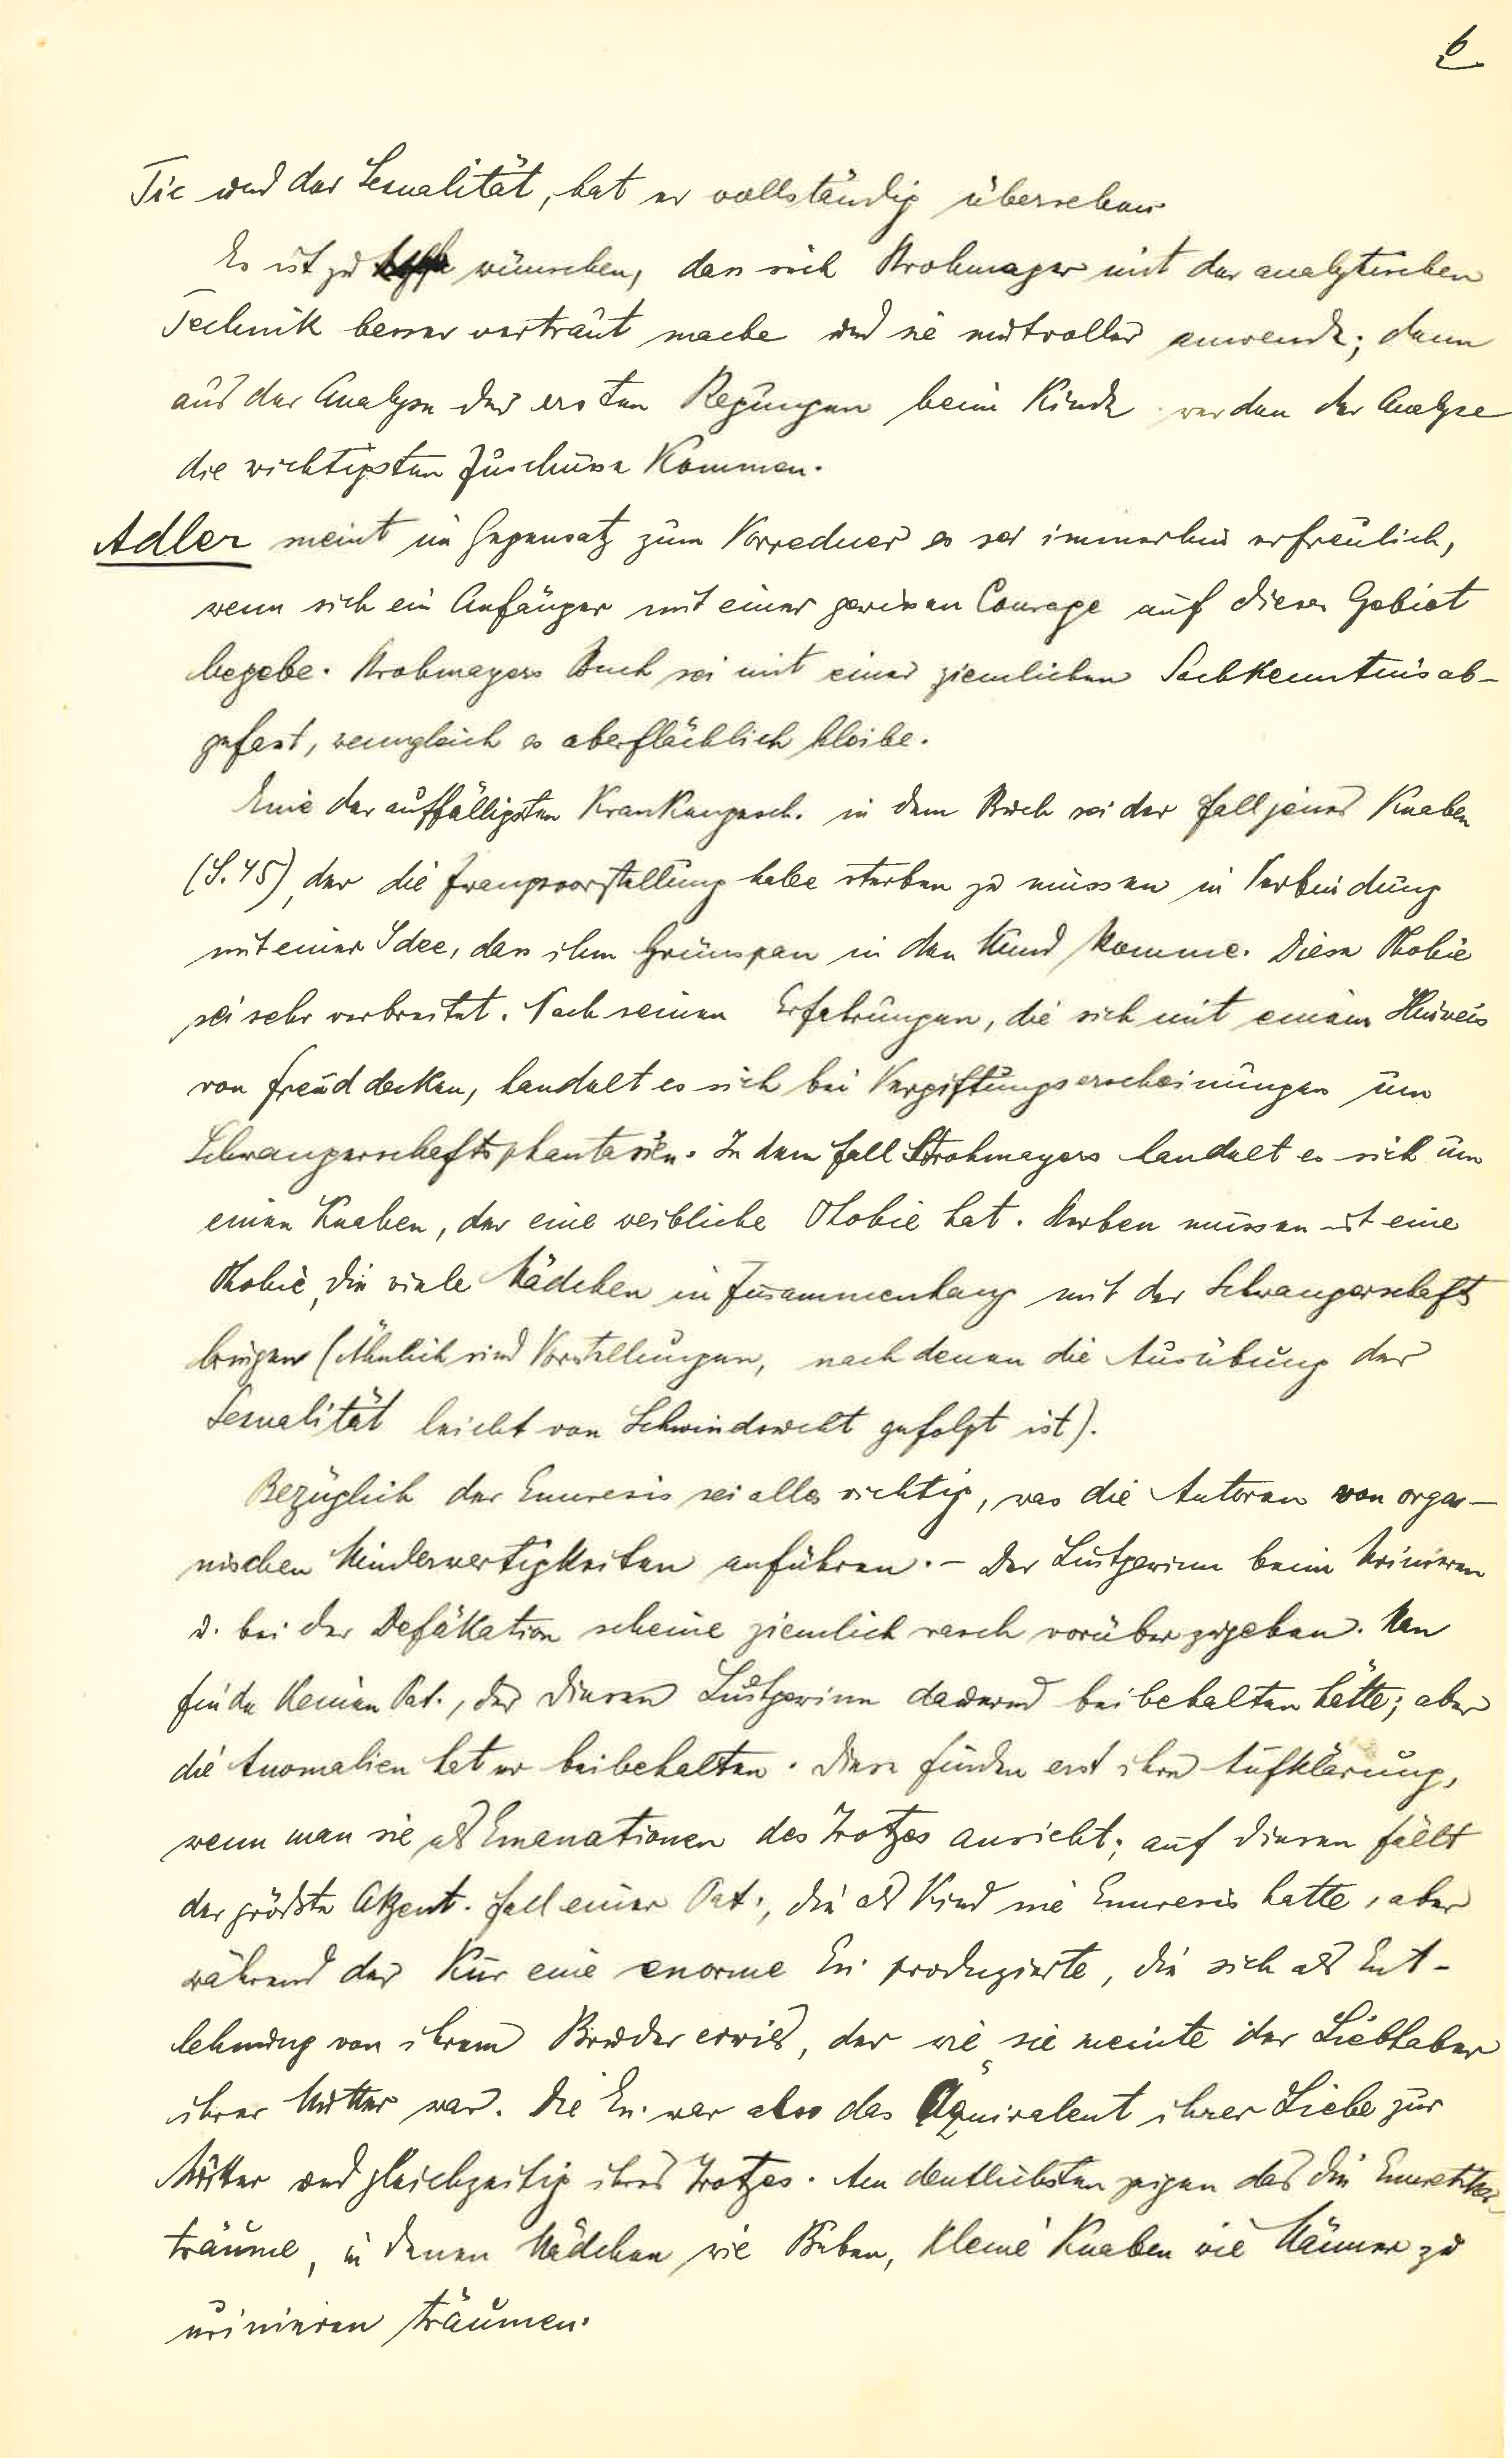 6
Tic und der Sexualität, hat er vollständig übersehen
Es ist zu wünschen, dass sich Strohmayer mit der analytischen
Technik besser vertraut mache und sie mutvoller anwende; denn
aus der Analyse der ersten Regungen beim Kinde werden der Analyse
die wichtigsten Zuschüsse kommen.
Adler meint im Gegensatz zum Vorredner es sei immerhin erfreulich,
wenn sich ein Anfänger mit einer gewissen Courage auf dieses Gebiet
begebe. Strohmayers Buch sei mit einer ziemlichen Sachkenntnis ab-
gefasst, wenngleich es oberflächlich bleibe.
Eine der auffälligsten Krankengesch. in dem Buch sei der Fall jenes Knaben
(S. 45), der die Zwangsvorstellung habe sterben zu müssen in Verbindung
mit einer Idee, dass ihm Grünspan in den Mund komme. Diese Phobie
sei sehr verbreitet. Nach seinen Erfahrungen, die sich mit einem Hinweis
von Freud decken, handelt es sich bei Vergiftungserscheinungen um
Schwangerschaftsphantasien. In dem Fall Strohmayers handelt es sich um
einen Knaben, der eine weibliche Phobie hat. Sterben müssen ist eine
Phobie, die viele Mädchen in Zusammenhang mit der Schwangerschaft
bringen (Ähnlich sind Vorstellungen, nach denen die Ausübung der
Sexualität leicht von Schwindsucht gefolgt ist).
Bezüglich der Enuresis sei alles richtig, was die Autoren von orga-
nischen Minderwertigkeiten anführen. – Der Lustgewinn beim Urinieren
u. bei der Defäkation scheine ziemlich rasch vorüberzugehen. Man
finde keinen Pat., der diesen Lustgewinn dauernd beibehalten hätte; aber
die Anomalien hat er beibehalten. Diese finden erst ihre Aufklärung,
wenn man sie als Emanationen des Trotzes ansieht; auf diesen fällt
der grösste Akzent. Fall einer Pat., die als Kind nie Enuresis hatte, aber
während der Kur eine enorme En. produzierte, die sich als Ent-
lehnung von ihrem Bruder erwies, der wie sie meinte der Liebhaber
ihrer Mutter war. Die En. war also das Äquivalent ihrer Liebe zur
Mutter und gleichzeitig ihres Trotzes. Am deutlichsten zeigen das die Enuretiker-
träume, in denen Mädchen wie Buben, kleine Knaben wie Männer zu
urinieren träumen.